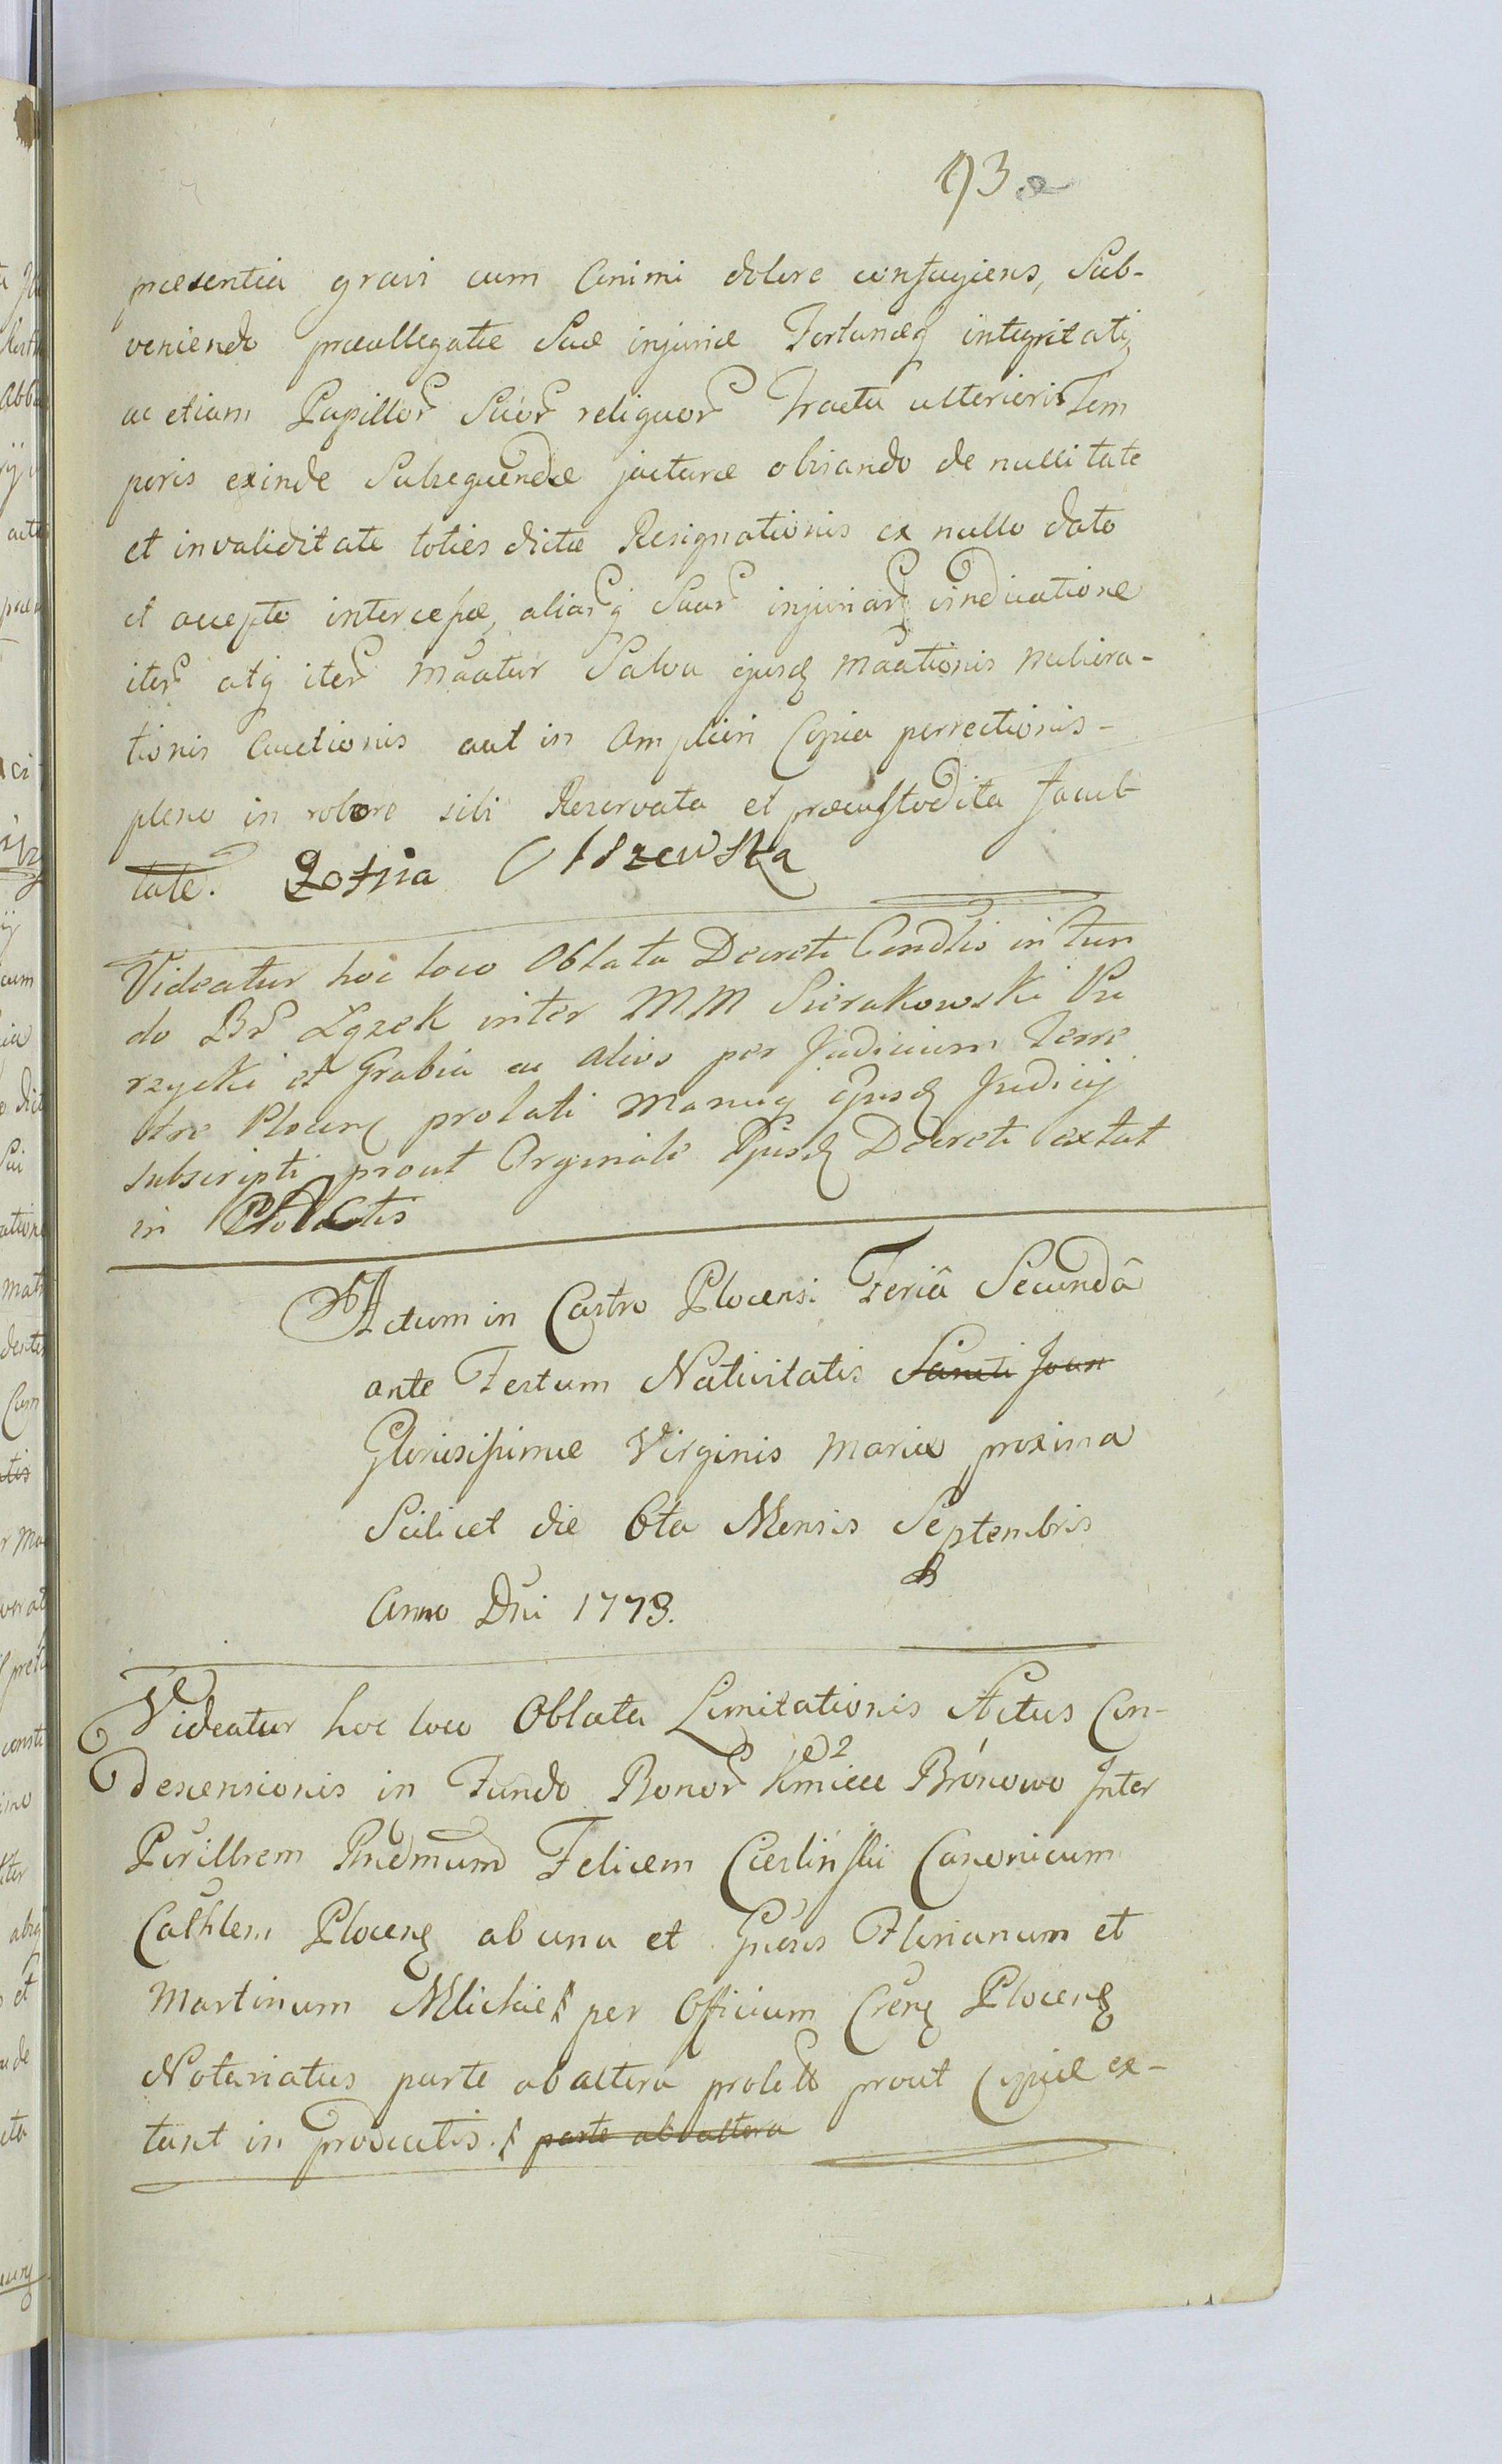 93
præsentia gravi cum Animi dolore confugiens, Sub-
veniendo præallegatæ Suæ injuriæ Fortunæq integritati
ac etiam Pupillor Suor reliquor Tractu ulterioris Tem
poris exinde Subsequendæ jacturæ obviando de nullitate
et invaliditate toties dictæ Resignationis ex nullo dato
et accepto interceptæ, aliarq Suar injuriar vindicatione
iter atq iter Maatur Salva ejusd Maationis Meliora-
tionis Auctionis aut in Ampliori Copia perrectionis-
pleno in robore sibi Reservata et præcustodita facul-
tate. Zofiia Olszewska
Videatur hoc loco Oblata Decreti Condlis in Fun
do Br Łązek inter MM Sierakowski
rzycki et Grabia ac alios per Judicium Terre
stre Plocen prolati Manuq Ejusd Judicij
subscripti prout Orginale Ejusd Decreti extat
in Productis
Actum in Castro Plocensi Feriâ Secundâ
ante Festum Nativitatis Sancti Joan
Gloriosissimæ Virginis Mariæ proxima
Scilicet die 6ta Mensis Septembris
Anno Dni 1773.
Videatur hoc loco Oblata Limitationis Actus Con-
descensionis in Fundo Bonor Kmicee Brónowo Inter
Perillrem Rndmum Felicem Cieslinski Canonicum
Cathlem Plocens ab una et Gnosos Florianum et
Martinum Mlickie per Officium Cren Plocens
Notariatus parte ab altera prolatt prout Copiæ ex-
tant in productis. parte ab altera